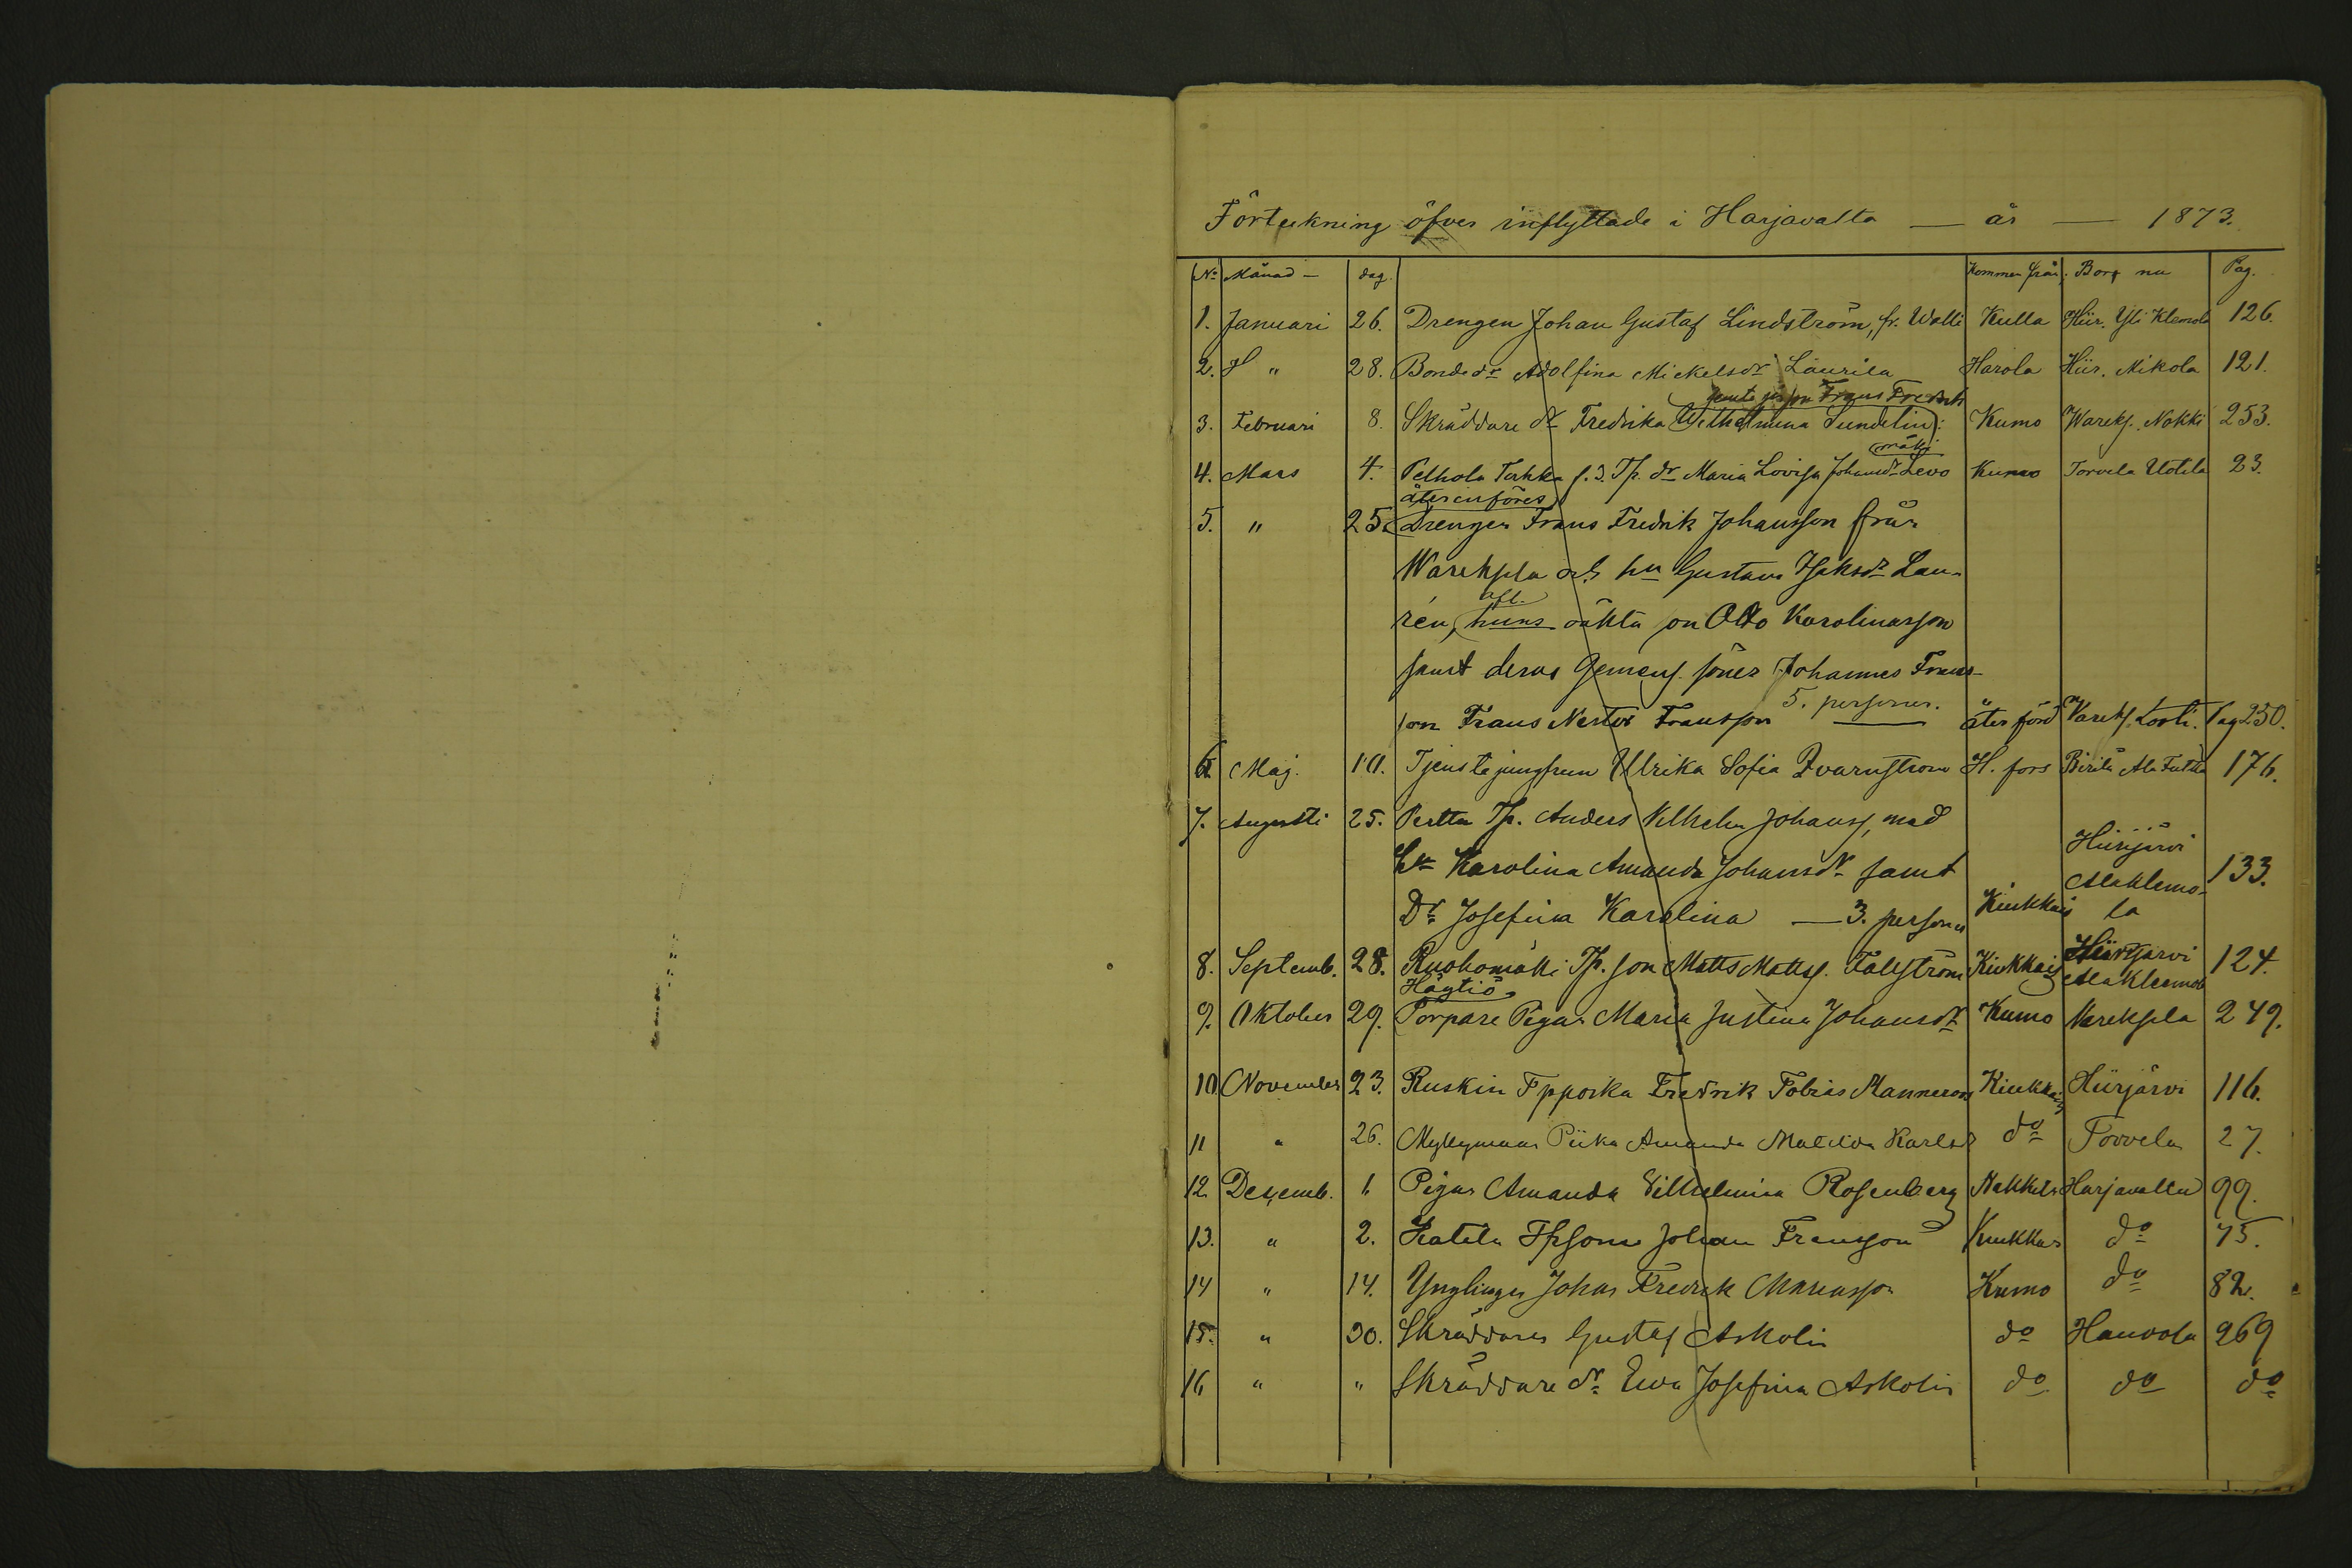 Förteckning öfver inflyttade i Harjavalta — år — 1873.
No Månad — dag. Kommen från Bor nu Pag.
1. Januari 26. Drengen Johan Gustaf Lindström, fr. Walli Kulla Hiir. Yli Klemola 126.
2. " 28. Bonde dr Adolfina Mickelsdr Laurila Harola Hiir. Mikola 121.
jemte Frans Fredrik
3. Februari 8. Skräddare dr Fredrika Wilhelmina Sundelin: Kumo Wareks. Nokki 253.
4. Mars 4. Torkka f.d. Tp. dr Maria Lovisa Johansdr Levo Kumo Torvela Uotila 23.
återinföres
5. " 25. Drengen Frans Fredrik Johansson från
Warekpla och hu Gustava Isaksdr Lau-
rén, hans oäkta son Otto Karolinasson
samt deras Gemens. söner Johannes Frans-
son Frans Nestor Fransson 5. personer. återförd Vareks. Pag 250.
6. Maj. 10. Tjenstejungfrun Ulrika Sofia Qvarnström H. fors Pirilä Ala 176.
7. Augusti 25. Pertta Tp. Anders Vilhelm Johanss, med
Hiirijärvi
Hu Karolina Amanda Johansdr samt Alaklemo- 133.
Dr Josefina Karolina — 3. personer Kiukkais la
8. Septemb. 28. Ruohomäki Tp. son Matts Matts. Fallström Kiukkais Hiirijärvi 124.
Häytiö Alaklemola
9. Oktober 29. Torpare Pigan Maria Justina Johansdr Kumo Warekpla 249.
10 November 23. Ruskin Tppoika Fredrik Tobias Manneroos Kiukkais Hiirjärvi 116.
11 " 26. Myllymaan Piika Amanda Matilda Karlsdr do Torvela 27.
12 Decemb. 1. Pigan Amanda Vilhelmina Rosenberg Nakkila Harjavalta 99.
13. " 2. Katila Tpsone Johan Fransson Kiukkais do 75.
14 " 14. Ynglingen Johan Fredrik Mariasson Kumo do 82.
15. " 30. Skräddaren Gustaf Askolin do Hanvola 269
16 " " Skräddare dr Ewa Josefina Askolin do do do